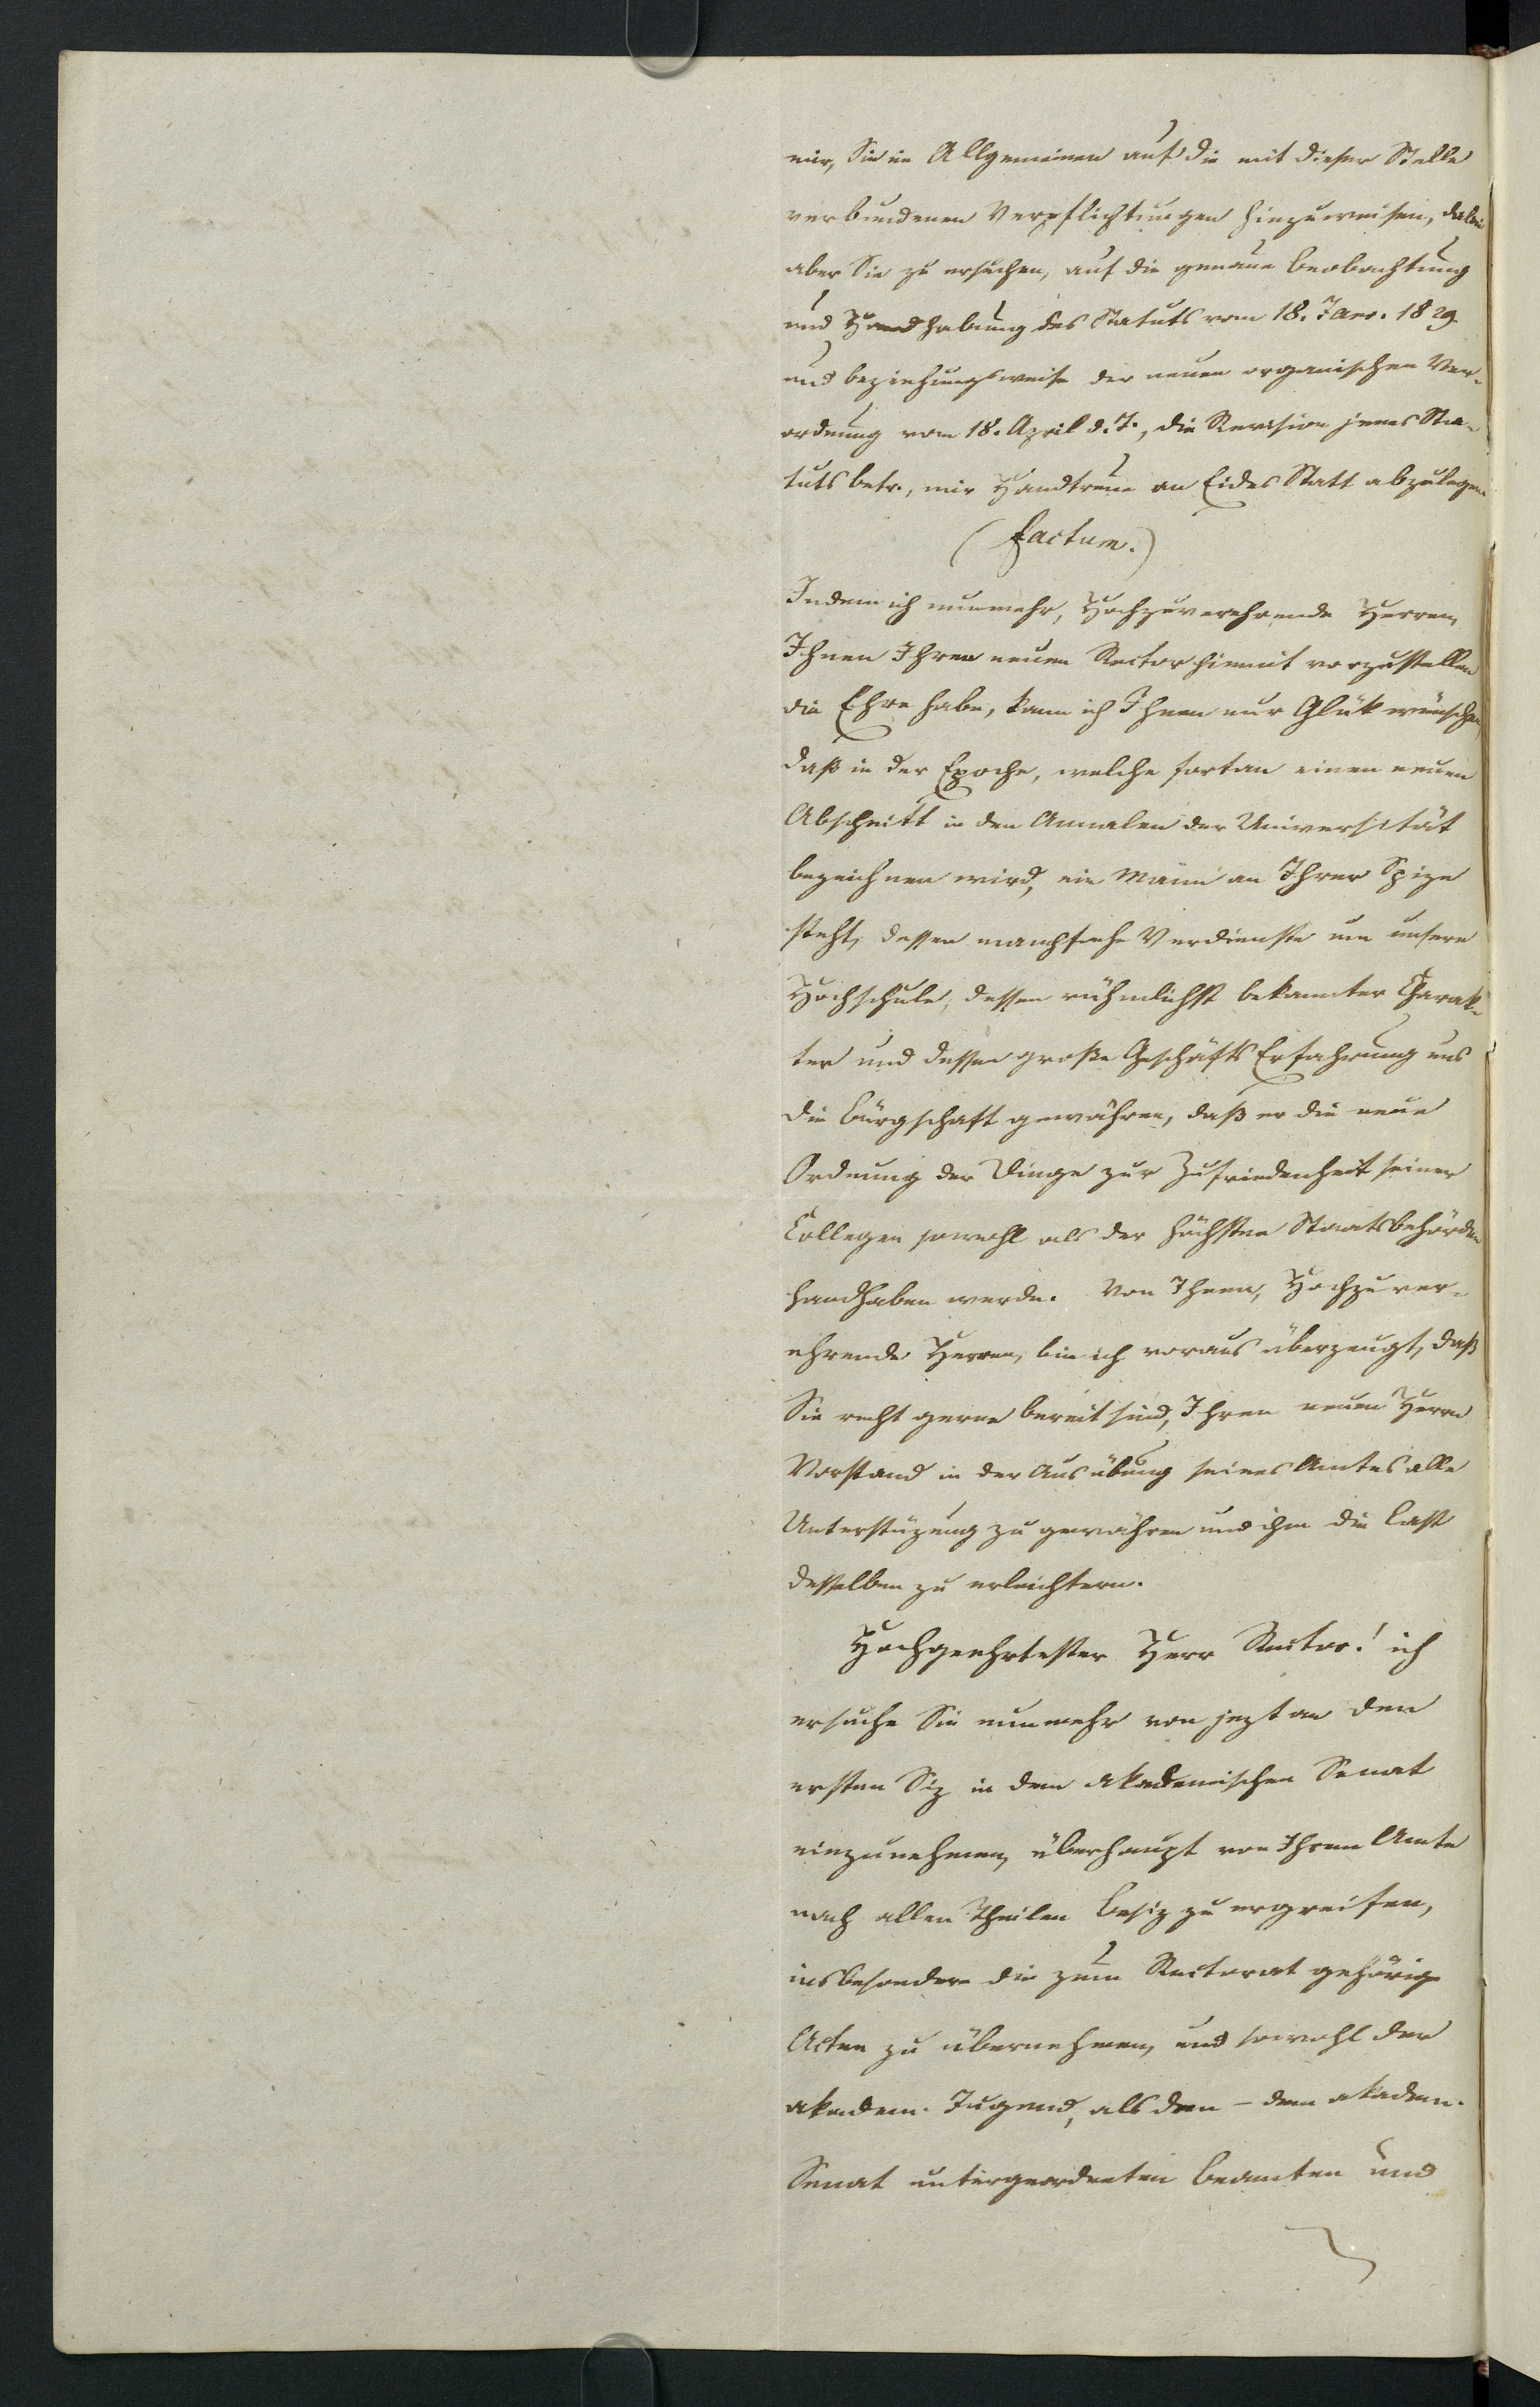 mir, Sie im Allgemeinen auf die mit dieser Stelle
verbundenen Verpflichtungen hinzuweisen, dabei
aber Sie zu ersuchen, auf die genaue Beobachtung
und Handhabung des Statuts vom 18. Jan. 1829
und beziehungsweise der neuen organischen Ver-
ordnung vom 18. April d. J., die Revision jenes Sta-
tuts betr., mir Handtreue an Eides Statt abzulegen.
(factum.)
Indem ich nunmehr, Hochzuverehrende Herren,
Ihnen Ihren neuen Rector hiemit vorzustellen
die Ehre habe, kann ich Ihnen nur Glük wünschen,
daß in der Epoche, welche fortan einen neuen
Abschnitt in den Annalen der Universität
bezeichnen wird, ein Mann an Ihrer Spize
steht, dessen manchfache Verdienste um unsere
Hochschule, dessen rühmlichst bekannter Charak-
ter und dessen große Geschäfts Erfahrung uns
die Bürgschaft gewähren, daß er die neue
Ordnung der Dinge zur Zufriedenheit seiner
Collegen sowohl als der höchsten Staatsbehörden
handhaben werde. Von Ihnen, Hochzuver-
ehrende Herren, bin ich voraus überzeugt, daß
Sie recht gerne bereit sind, Ihren neuen Herrn
Vorstand in der Ausübung seines Amtes alle
Unterstüzung zu gewähren und ihm die Last
desselben zu erleichtern.
Hochgeehrtester Herr Rector! ich
ersuche Sie nunmehr von jezt an den
ersten Siz in dem akademischen Senat
einzunehmen, überhaupt von Ihrem Amte
nach allen Theilen Besiz zu ergreifen,
insbesondere die zum Rectorat gehörige
Acten zu übernehmen, und sowohl der
akadem. Jugend, als den - dem akadem.
Senat untergeordneten Beamten und